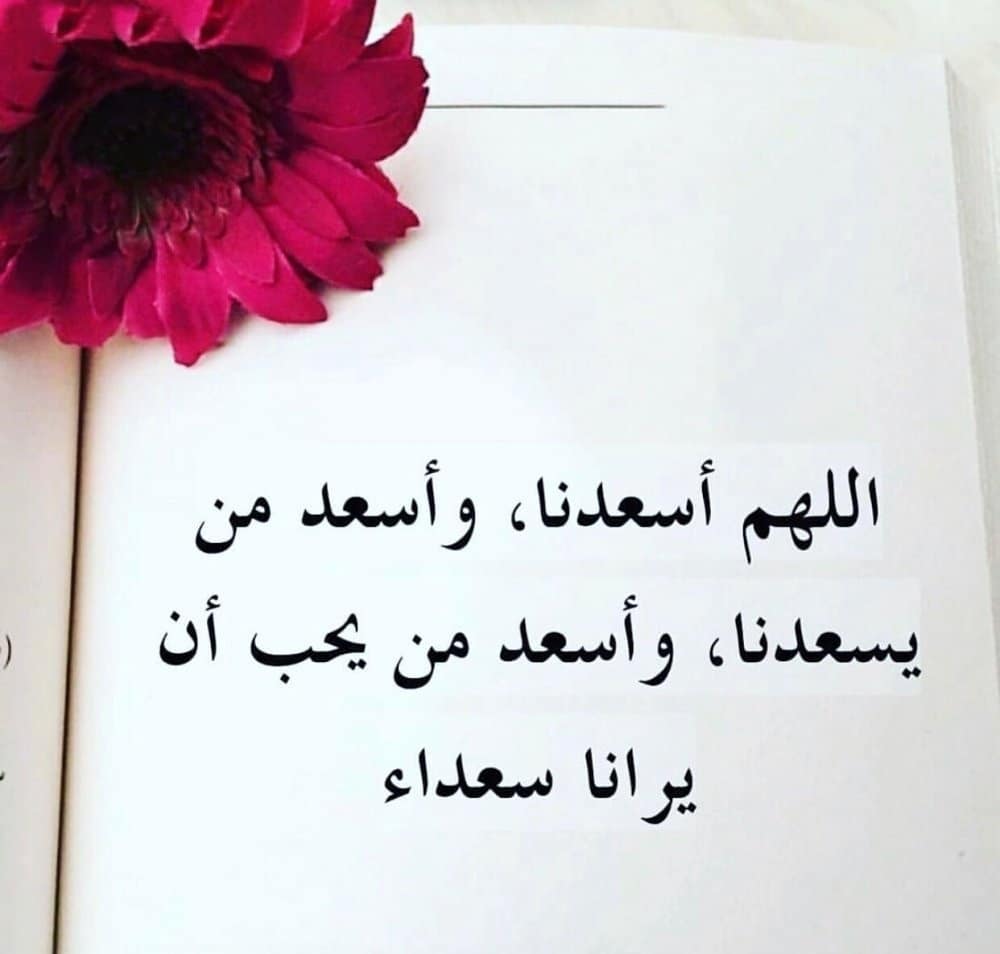 اللهم أسعدنا، وأسعد من
يسعدنا، وأسعد من يحب أن
يرانا سعداء